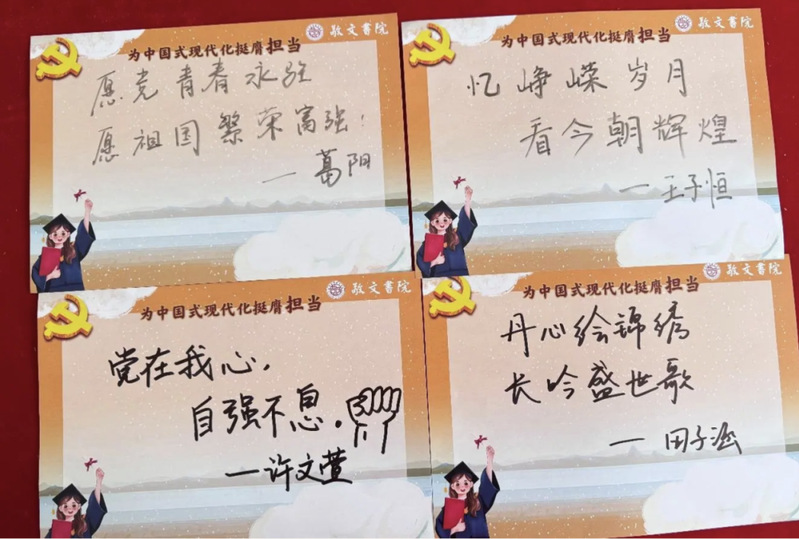 为中国式现代化挺膺担当
敬文書院
愿党青春永驻
愿祖国繁荣富强!
— 葛阳
为中国式现代化挺膺担当
敬文書院
忆峥嵘岁月
看今朝辉煌
— 王子恒
为中国式现代化挺膺担当
敬文書院
党在我心,
自强不息。
— 许文萱
为中国式现代化挺膺担当
敬文書院
丹心绘锦绣
长吟盛世歌
— 田子涵